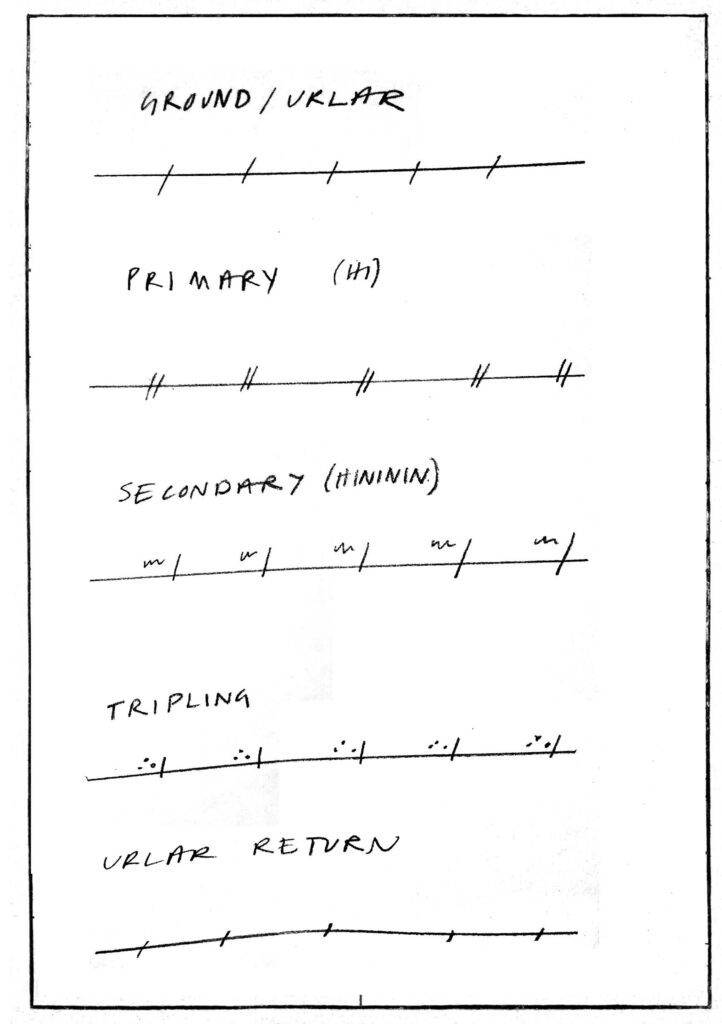 GROUND / URLAR
PRIMARY (HI)
SECONDARY (HININ)
TRIPLING
URLAR RETURN